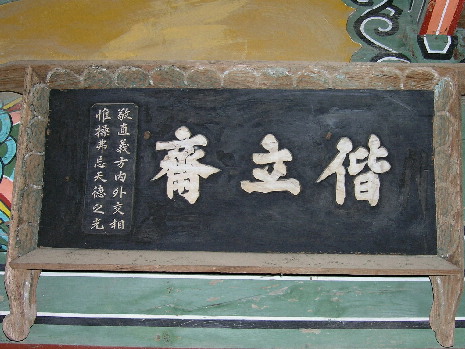 偕立齋
敬直義方内外交相
惟操弗天德之光